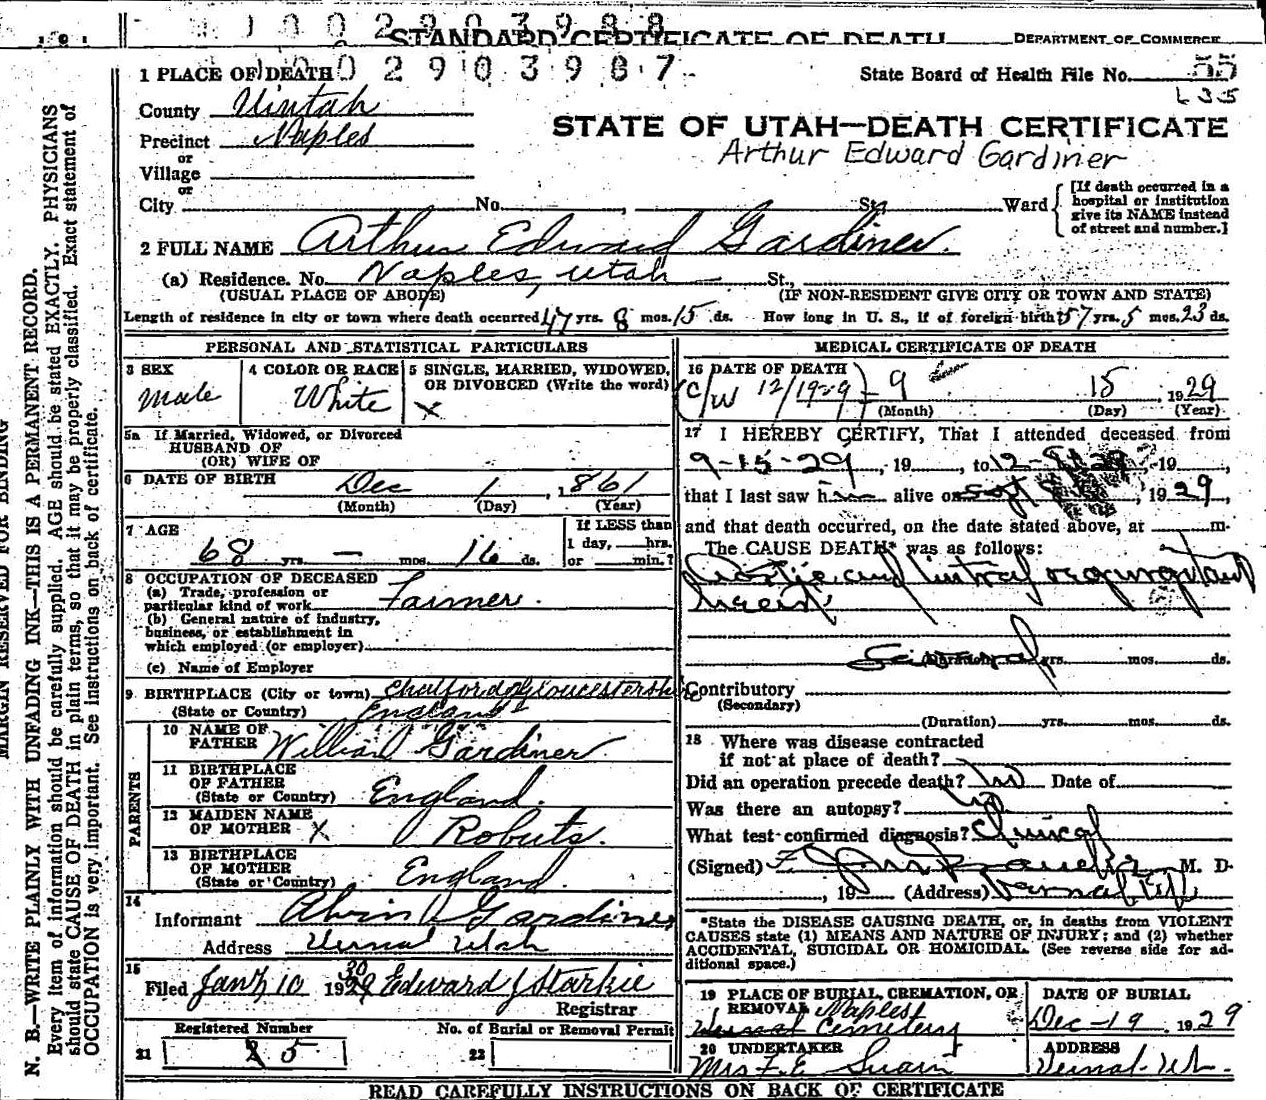 1 0 0 2 9 0 3 9 8 8
STANDARD CERTIFICATE OF DEATH DEPARTMENT OF COMMERCE
1 PLACE OF DEATH 1 0 0 2 9 0 3 9 8 7 State Board of Health File No. 55
County Uintah
STATE OF UTAH—DEATH CERTIFICATE
Precinct Naples
Arthur Edward Gardiner
or
Village
or
City No. , St. Ward
[If death occurred in a hospital or institution give its NAME instead of street and number.]
2 FULL NAME Arthur Edward Gardiner.
(a) Residence. No. Naples, Utah St.,
(USUAL PLACE OF ABODE) (IF NON-RESIDENT GIVE CITY OR TOWN AND STATE)
Length of residence in city or town where death occurred 47 yrs. 8 mos. 15 ds. How long in U. S., if of foreign birth? 57 yrs. 5 mos. 23 ds.
PERSONAL AND STATISTICAL PARTICULARS
3 SEX 4 COLOR OR RACE 5 SINGLE, MARRIED, WIDOWED, OR DIVORCED (Write the word)
Male White X
5a If Married, Widowed, or Divorced
HUSBAND OF
(OR) WIFE OF
6 DATE OF BIRTH Dec 1, 1861
(Month) (Day) (Year)
7 AGE If LESS than
68 yrs. — mos. 16 ds. 1 day, hrs.
or min.?
8 OCCUPATION OF DECEASED
(a) Trade, profession or
particular kind of work Farmer.
(b) General nature of industry,
business, or establishment in
which employed (or employer)
(c) Name of Employer
9 BIRTHPLACE (City or town) Chalford Gloucestershire
(State or Country) England
PARENTS
10 NAME OF
FATHER William Gardiner
11 BIRTHPLACE
OF FATHER
(State or Country) England.
12 MAIDEN NAME
OF MOTHER X Roberts.
13 BIRTHPLACE
OF MOTHER
(State or Country) England.
14
Informant Alvin Gardiner
Address Vernal Utah
15
Filed Jany 10 1930 Edward J Starkie
Registrar
Registered Number No. of Burial or Removal Permit
21 5 22
MEDICAL CERTIFICATE OF DEATH
16 DATE OF DEATH
12/19-29 9 15 1929
(Month) (Day) (Year)
17 I HEREBY CERTIFY, That I attended deceased from
9-15-29, 19 , to 12- 19 ,
that I last saw him alive on Sept , 1929
and that death occurred, on the date stated above, at m.
The CAUSE DEATH* was as follows:
Aortic and mitral regurgitant
Several (Duration) yrs. mos. ds.
Contributory
(Secondary)
(Duration) yrs. mos. ds.
18 Where was disease contracted
if not at place of death?
Did an operation precede death? no Date of
Was there an autopsy? no
What test confirmed diagnosis? Clinical
(Signed) M. D.
, 19 (Address) Vernal Ut
*State the DISEASE CAUSING DEATH, or, in deaths from VIOLENT
CAUSES state (1) MEANS AND NATURE OF INJURY; and (2) whether
ACCIDENTAL, SUICIDAL OR HOMICIDAL. (See reverse side for ad-
ditional space.)
19 PLACE OF BURIAL, CREMATION, OR DATE OF BURIAL
REMOVAL Naples
Vernal Cemetery Dec-19, 1929
20 UNDERTAKER ADDRESS
Mrs F. E. Swain Vernal-Ut.
READ CAREFULLY INSTRUCTIONS ON BACK OF CERTIFICATE
MARGIN RESERVED FOR BINDING
N. B.—WRITE PLAINLY WITH UNFADING INK—THIS IS A PERMANENT RECORD.
Every item of information should be carefully supplied. AGE should be stated EXACTLY. PHYSICIANS
should state CAUSE OF DEATH in plain terms, so that it may be properly classified. Exact statement of
OCCUPATION is very important. See instructions on back of certificate.